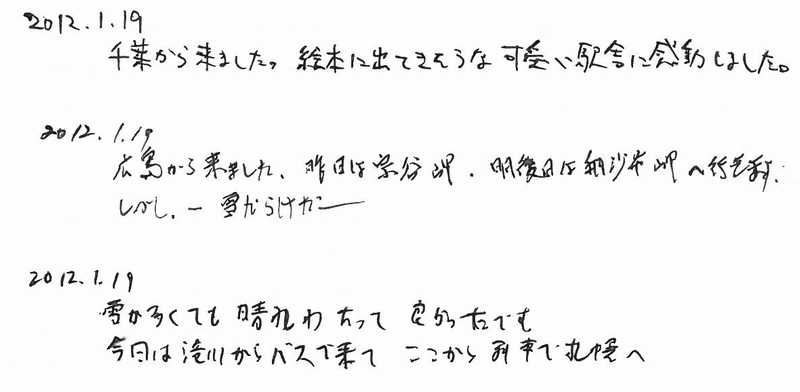 2012.1.19
千葉から来ました。絵本に出てきそうな可愛い駅舎に感動しました。
2012.1.19
広島から来ました、昨日は宗谷岬、明後日は納沙布岬へ行きます。
しかし、一雪だらけだー
2012.1.19
雪が多くても晴れわたって良かったです
今日は滝川からバスで来てここから列車で札幌へ